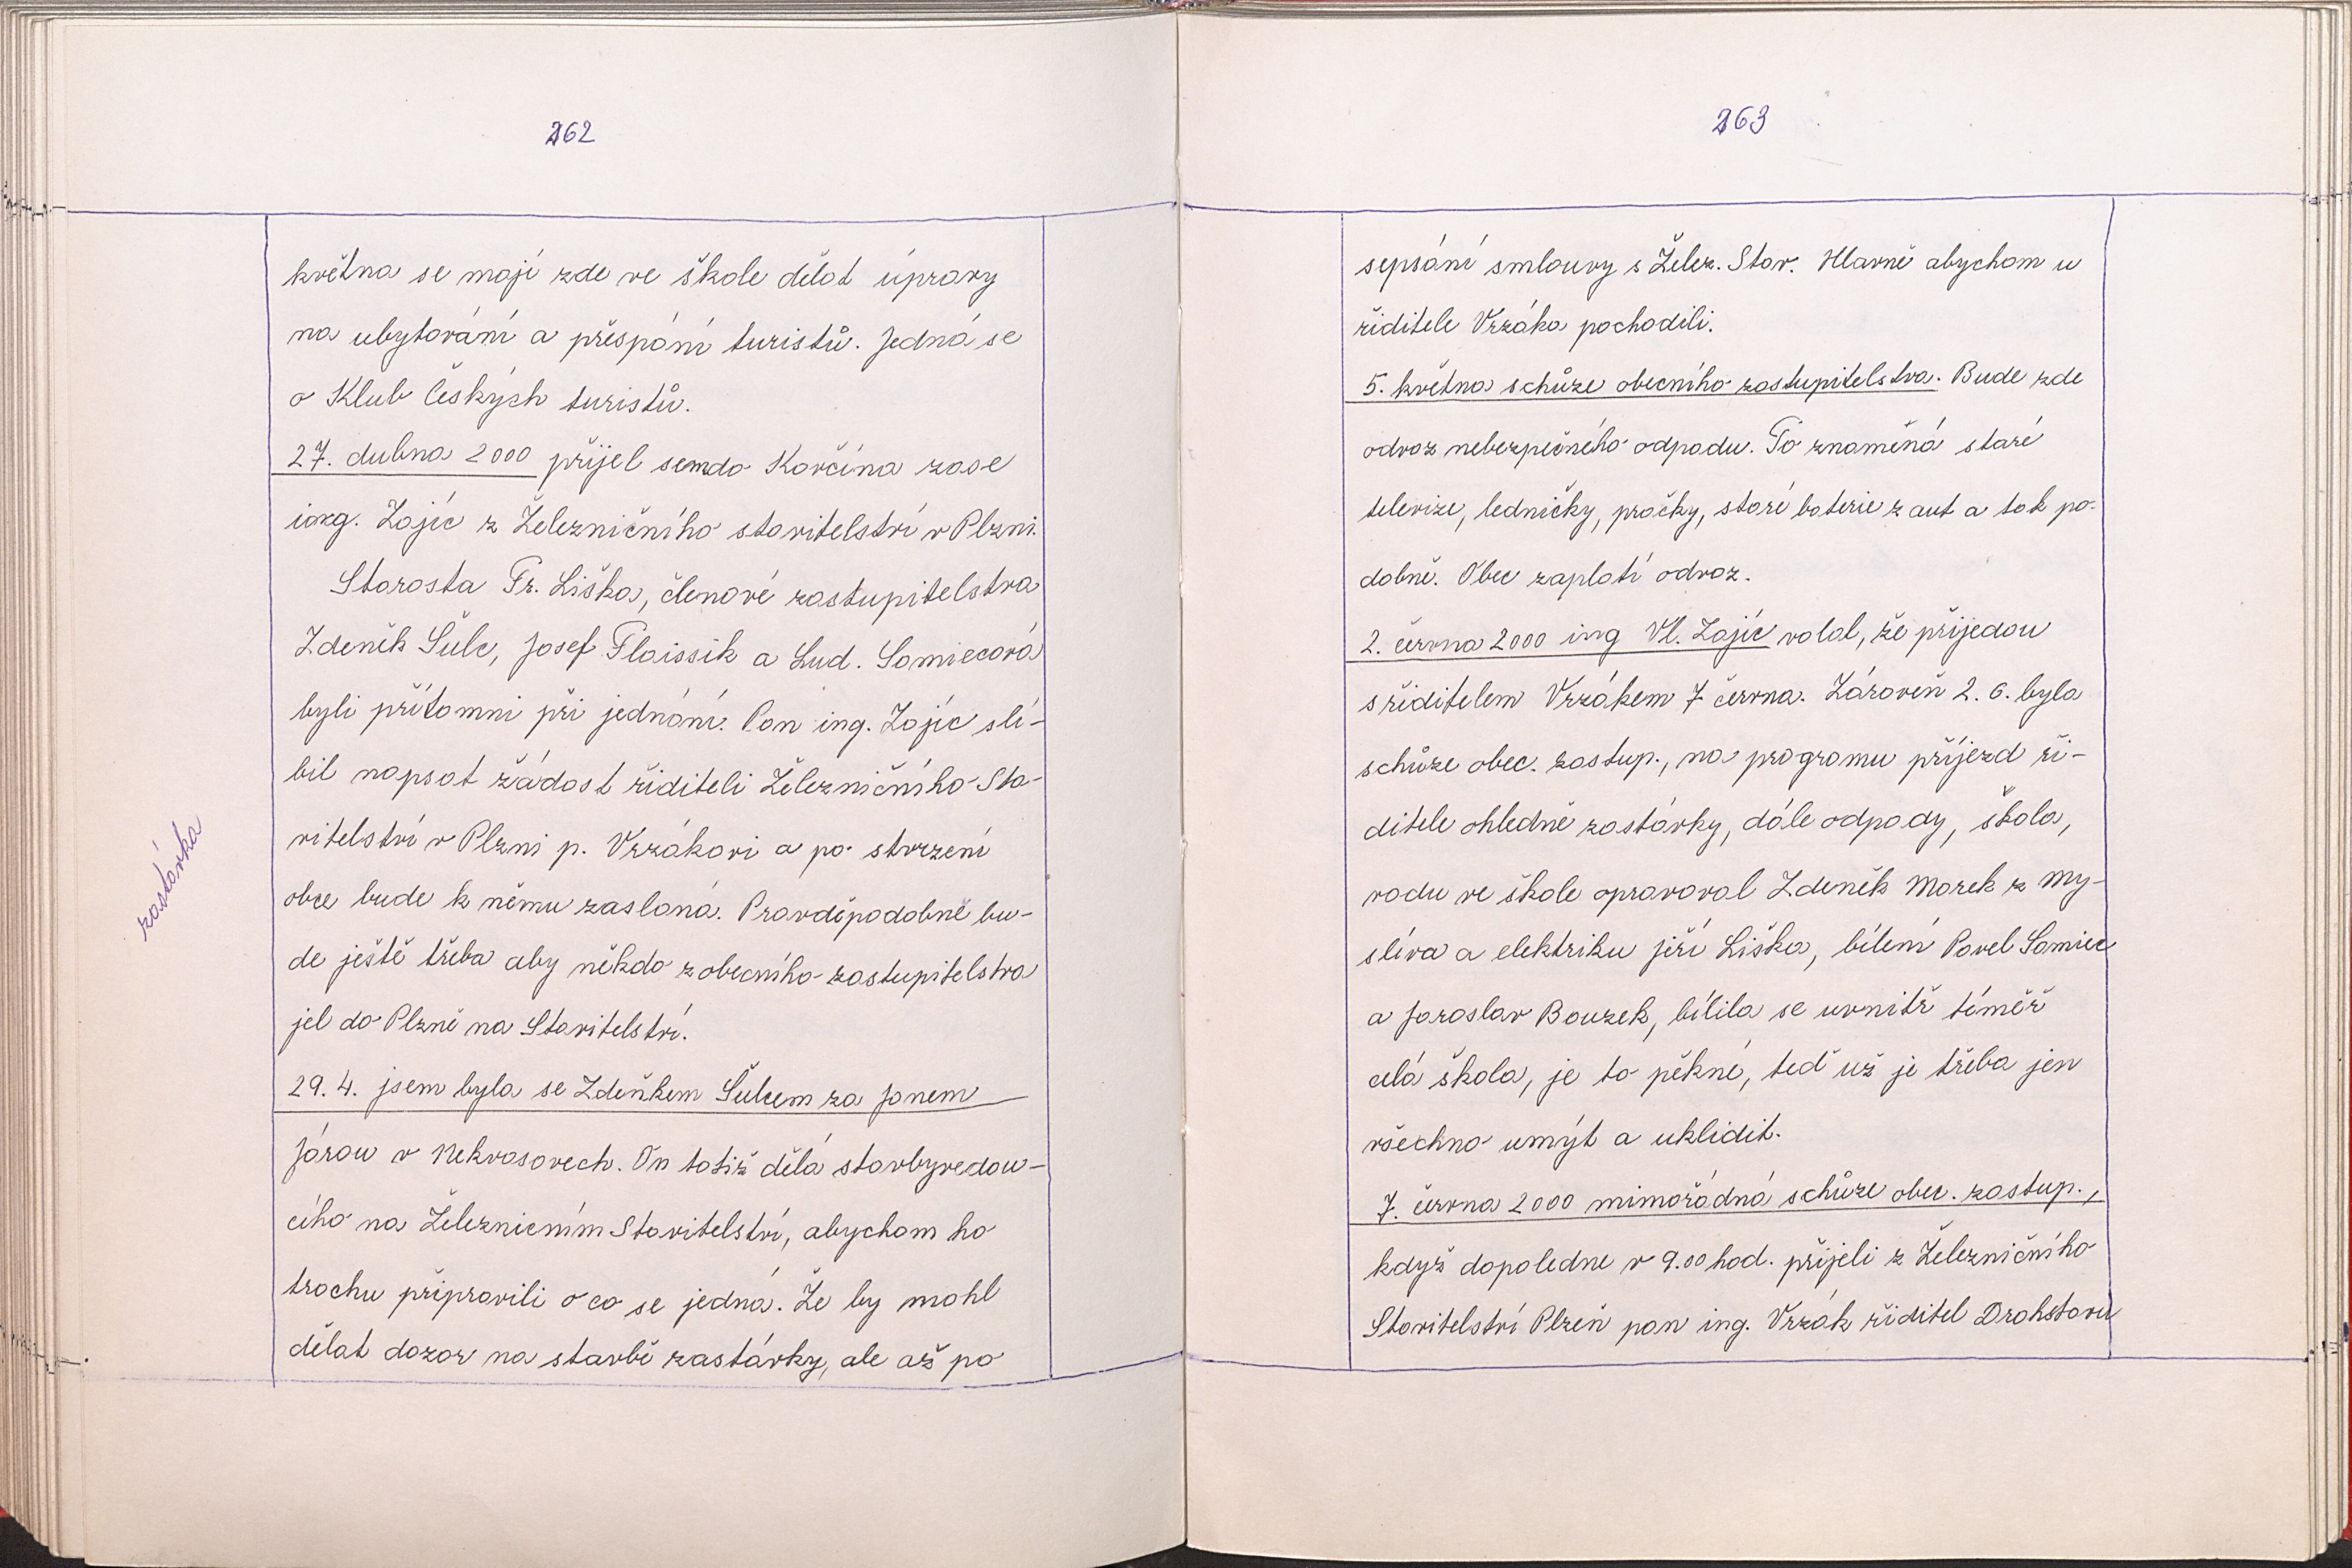 262
května se mají zde ve škole dělat úpravy
na ubytování a přespání turistů. Jedná se
o Klub Českých turistů.
27. dubna 2000 přijel sem do Kovčína zase
ing. Zajíc z Železničního stavitelství v Plzni.
Starosta Fr. Liška, členové zastupitelstva
Zdeněk Šulc, Josef Flaissik a Lud. Samiecová
byli přítomni při jednání. Pan ing. Zajíc slí-
bil napsat žádost řediteli Železničního Sta-
vitelství v Plzni p. Vrzákovi a po stvrzení
obce bude k němu zaslaná. Pravděpodobně bu-
de ještě třeba aby někdo z obecního zastupitelstva
jel do Plzně na Stavitelství.
29. 4. jsem byla se Zdeňkem Šulcem za Janem
Járou v Nekvasovech. On totiž dělá stavbyvedou-
cího na Železnicním Stavitelství, abychom ho
trochu připravili o co se jedná. Že by mohl
dělat dozor na stavbě zastávky, ale až po
zastávka
263
sepsání smlouvy s Želez. Stav. Hlavně abychom u
ředitele Vrzáka pochodili.
5. května schůze obecního zastupitelstva. Bude zde
odvoz nebezpečného odpadu. To znaměná staré
televize, ledničky, pračky, staré baterie z aut a tak po-
dobně. Obec zaplatí odvoz.
2. června 2000 ing Vl. Zajíc volal, že přijedou
s ředitelem Vrzákem 7 června. Zároveň 2. 6. byla
schůze obec. zastup., na programu příjezd ře-
ditele ohledně zastávky, dále odpady, škola,
vodu ve škole opravoval Zdeněk Marek z My-
slíva a elektriku Jiří Liška, bílení Pavel Samiec
a Jaroslav Bouzek, bílila se uvnitř téměř
celá škola, je to pěkné, teď už je třeba jen
všechno umýt a uklidit.
7. června 2000 mimořádná schůze obec. zastup.,
když dopoledne v 9.00 hod. přijeli z Železničního
Stavitelství Plzeň pan ing. Vrzák ředitel Drahstavu